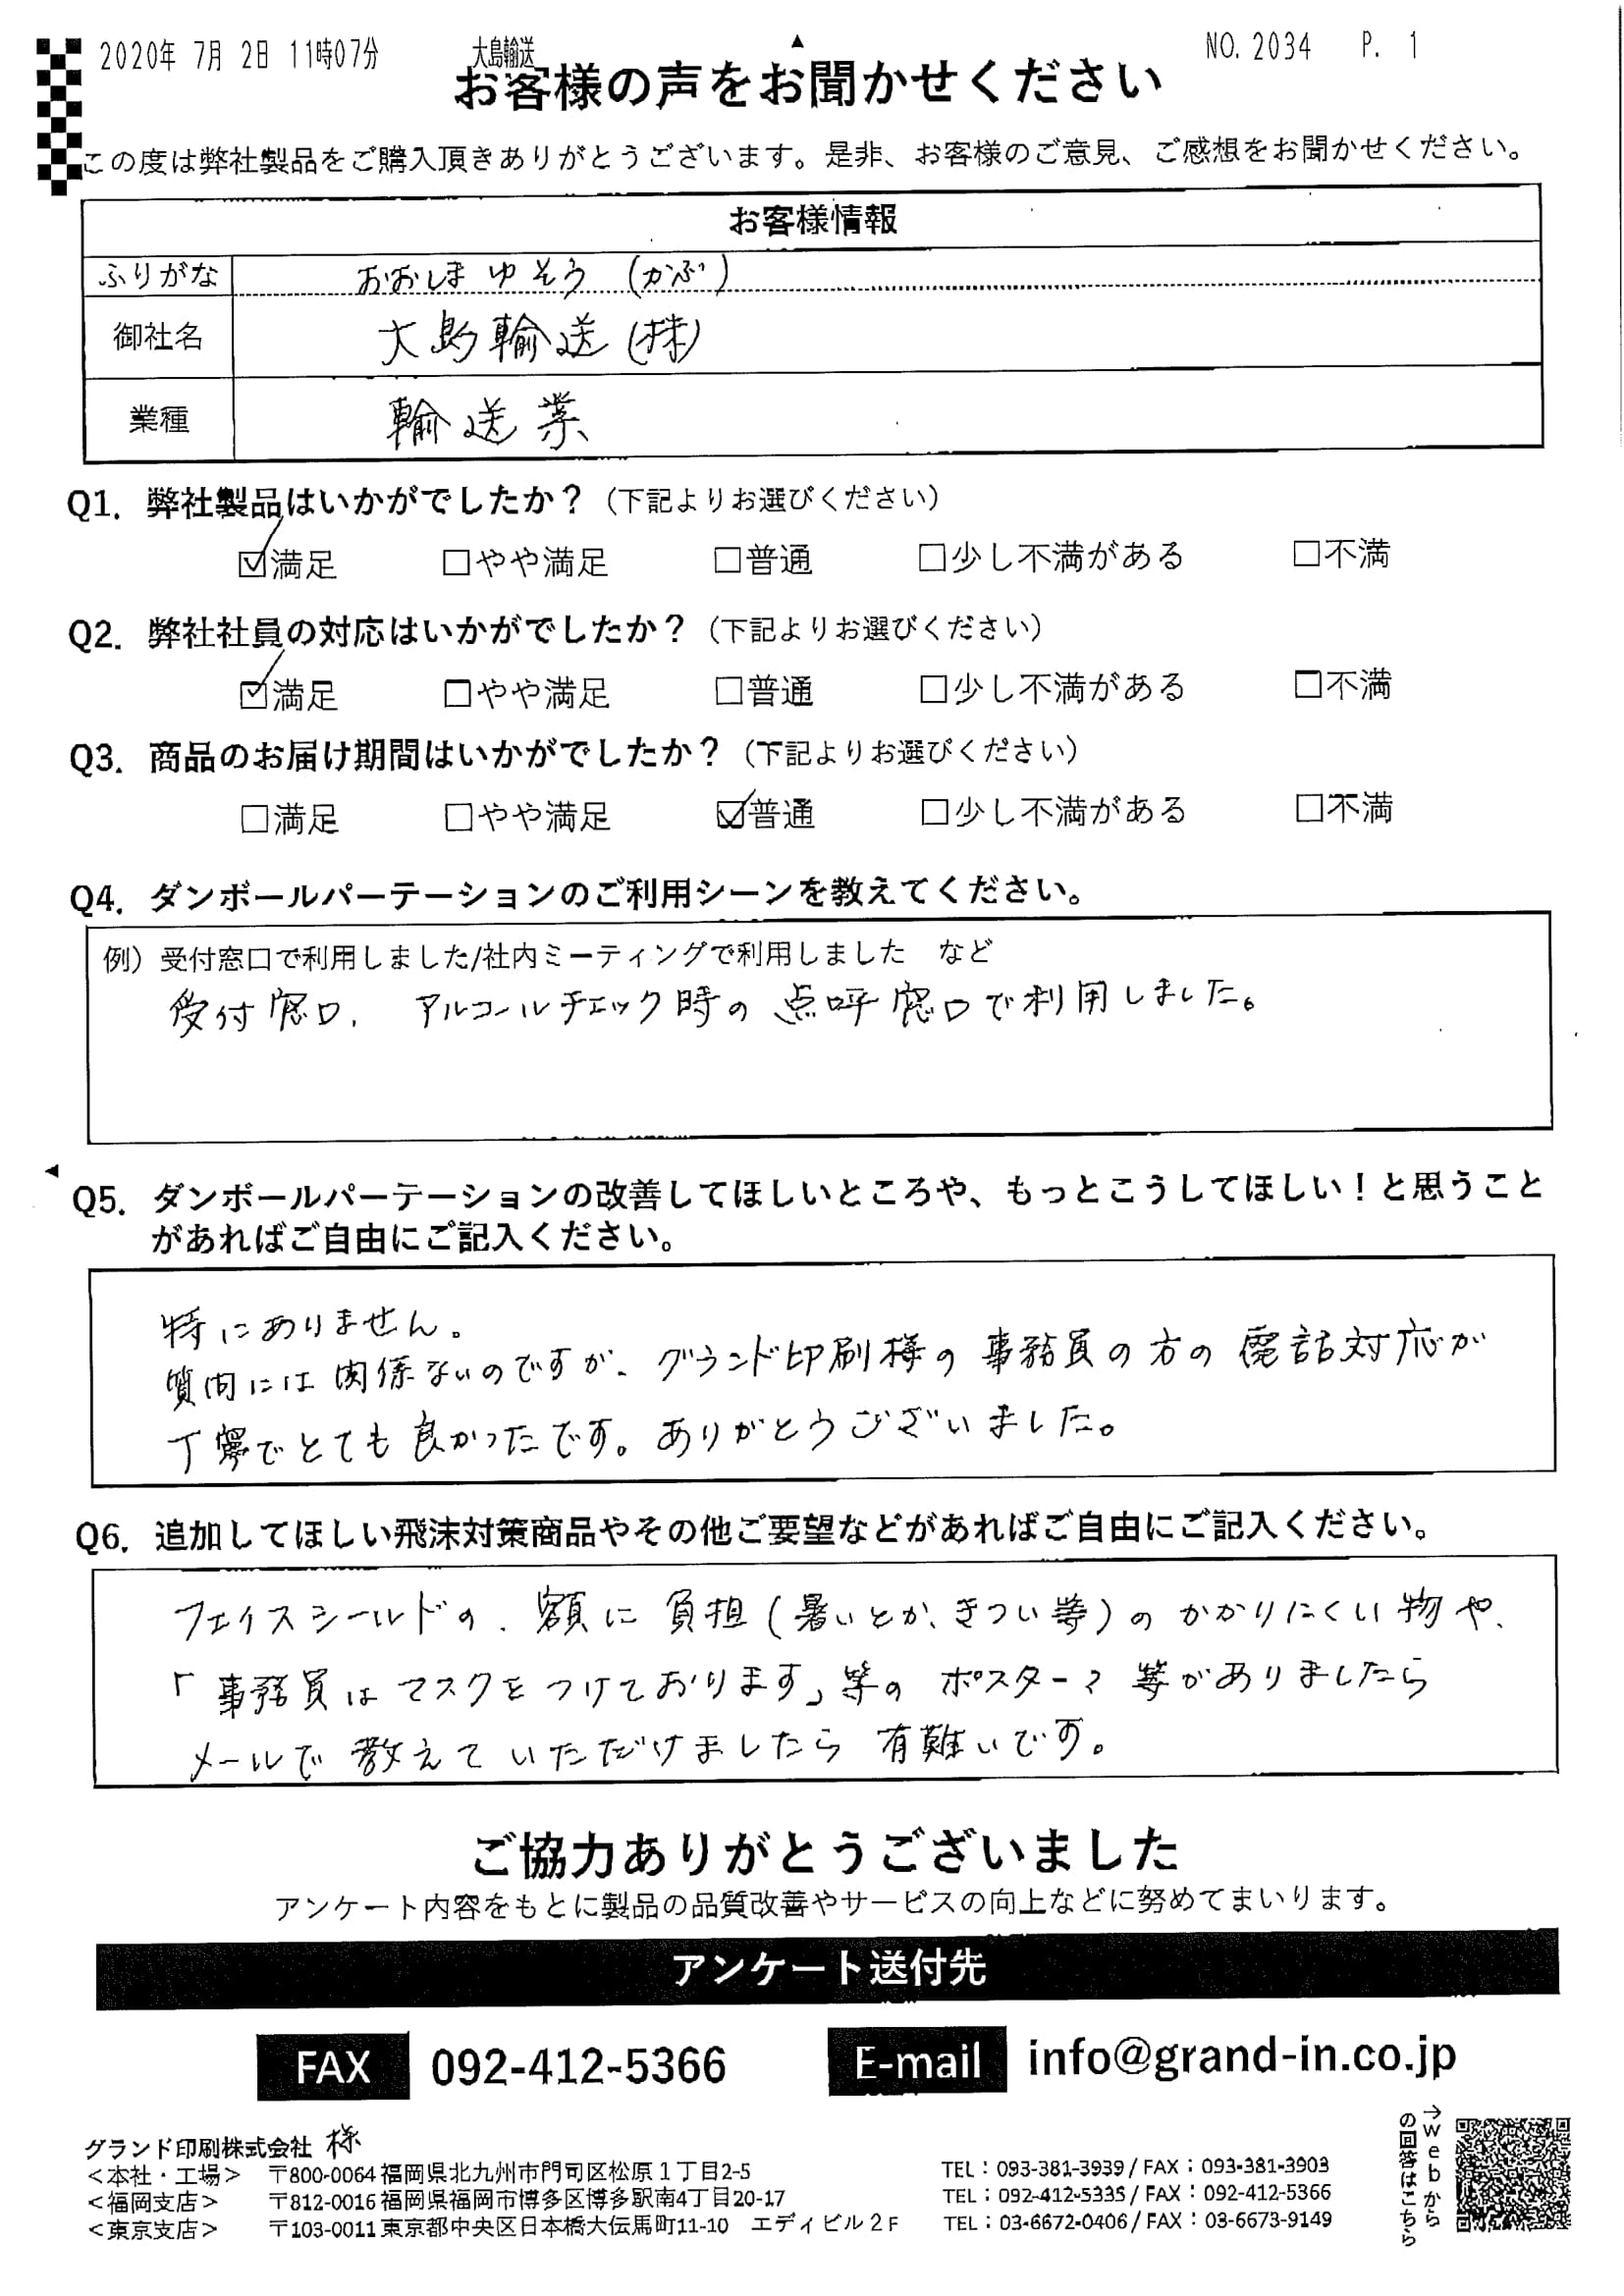 2020年 7月 2日 11時07分 大島輸送 NO. 2034 P. 1
お客様の声をお聞かせください
この度は弊社製品をご購入頂きありがとうございます。是非、お客様のご意見、ご感想をお聞かせください。
お客様情報
ふりがな おおしまゆそう (かぶ)
御社名 大島輸送(株)
業種 輸送業
Q1. 弊社製品はいかがでしたか？（下記よりお選びください）
☑満足 □やや満足 □普通 □少し不満がある □不満
Q2. 弊社社員の対応はいかがでしたか？（下記よりお選びください）
☑満足 □やや満足 □普通 □少し不満がある □不満
Q3. 商品のお届け期間はいかがでしたか？（下記よりお選びください）
□満足 □やや満足 ☑普通 □少し不満がある □不満
Q4. ダンボールパーテーションのご利用シーンを教えてください。
例）受付窓口で利用しました/社内ミーティングで利用しました　など
受付窓口、アルコールチェック時の点呼窓口で利用しました。
Q5. ダンボールパーテーションの改善してほしいところや、もっとこうしてほしい！と思うこと
があればご自由にご記入ください。
特にありません。
質問には関係ないのですが、グランド印刷様の事務員の方の電話対応が
丁寧でとても良かったです。ありがとうございました。
Q6. 追加してほしい飛沫対策商品やその他ご要望などがあればご自由にご記入ください。
フェイスシールドの、額に負担(暑いとか、きつい等)のかかりにくい物や、
「事務員はマスクをつけております」等のポスター？等がありましたら
メールで教えていただけましたら有難いです。
ご協力ありがとうございました
アンケート内容をもとに製品の品質改善やサービスの向上などに努めてまいります。
アンケート送付先
FAX 092-412-5366 E-mail info@grand-in.co.jp
グランド印刷株式会社 様
＜本社・工場＞ 〒800-0064 福岡県北九州市門司区松原１丁目2-5 TEL：093-381-3939 / FAX：093-381-3903
＜福岡支店＞ 〒812-0016 福岡県福岡市博多区博多駅南4丁目20-17 TEL：092-412-5335 / FAX：092-412-5366
＜東京支店＞ 〒103-0011 東京都中央区日本橋大伝馬町11-10　エディビル２F TEL：03-6672-0406 / FAX：03-6673-9149
→webから
の回答はこちら